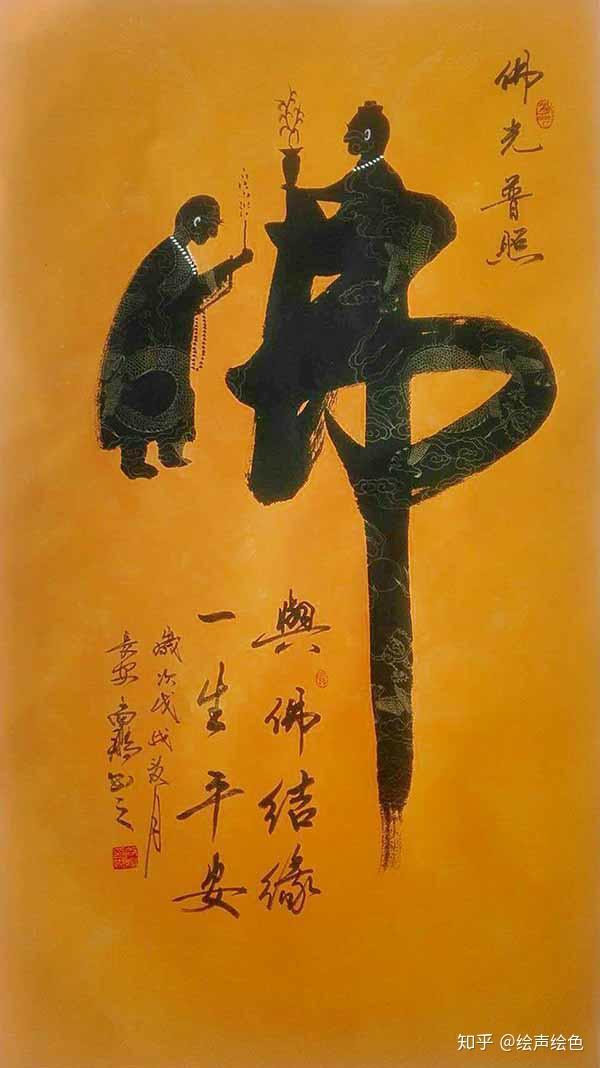 佛光普照
佛
與佛结缘
一生平安
歲次戊戌夏月
長安 書之
知乎 @绘声绘色